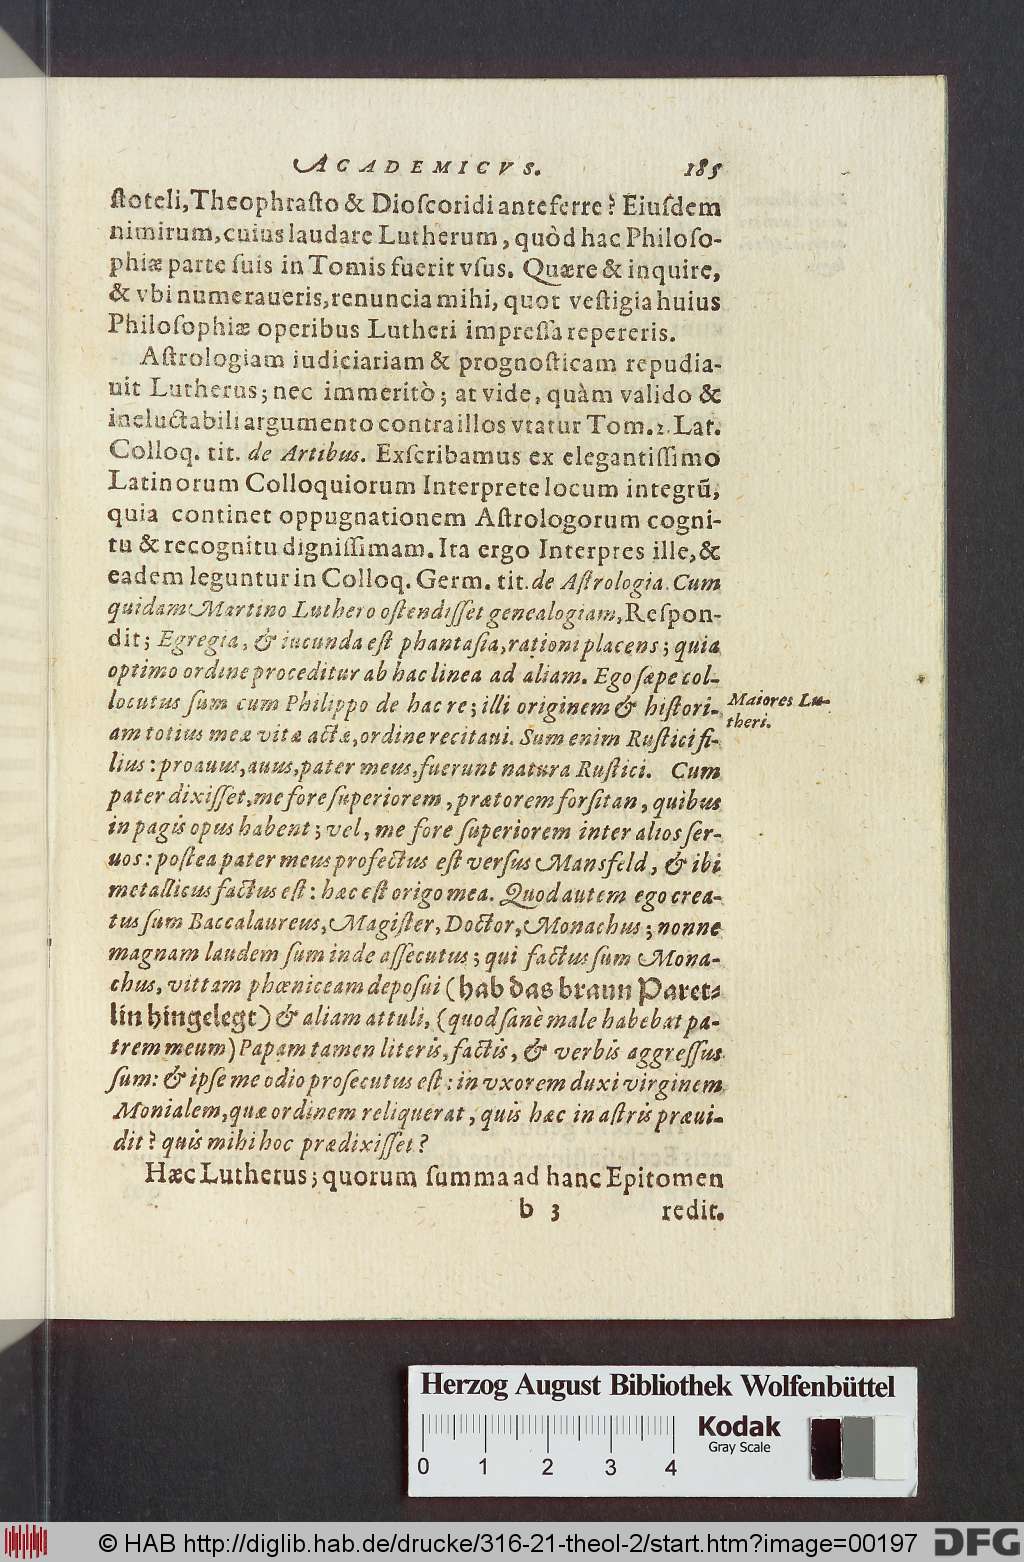 ACADEMICVS. 185
ſtoteli, Theophraſto & Dioſcoridi anteferre? Eiuſdem
nimirum, cuius laudare Lutherum, quòd hac Philoſo-
phiæ parte ſuis in Tomis fuerit vſus. Quære & inquire,
& vbi numeraueris, renuncia mihi, quot veſtigia huius
Philoſophiæ operibus Lutheri impreſſa repereris.
Aſtrologiam iudiciariam & prognoſticam repudia-
uit Lutherus; nec immeritò; at vide, quàm valido &
ineluctabili argumento contra illos vtatur Tom. 2. Lat.
Colloq. tit. de Artibus. Exſcribamus ex elegantiſſimo
Latinorum Colloquiorum Interprete locum integrũ,
quia continet oppugnationem Aſtrologorum cogni-
tu & recognitu digniſſimam. Ita ergo Interpres ille, &
eadem leguntur in Colloq. Germ. tit. de Aſtrologia. Cum
quidam Martino Luthero oſtendiſſet genealogiam, Reſpon-
dit; Egregia, & iucunda eſt phantaſia, rationi placens; quia
optimo ordine proceditur ab hac linea ad aliam. Ego ſæpe col-
locutus ſum cum Philippo de hac re; illi originem & hiſtori-
Maiores Lu-
theri.
am totius meæ vitæ actæ, ordine recitaui. Sum enim Ruſtici fi-
lius: proauus, auus, pater meus, fuerunt natura Ruſtici. Cum
pater dixiſſet, me fore ſuperiorem, prætorem forſitan, quibus
in pagis opus habent; vel, me fore ſuperiorem inter alios ſer-
uos: poſtea pater meus profectus eſt verſus Mansfeld, & ibi
metallicus factus eſt: hæc eſt origo mea. Quod autem ego crea-
tus ſum Baccalaureus, Magiſter, Doctor, Monachus; nonne
magnam laudem ſum inde aſſecutus; qui factus ſum Mona-
chus, vittam phœniceam depoſui (hab das braun Paret-
lin hingelegt) & aliam attuli, (quod ſanè male habebat pa-
trem meum) Papam tamen literis, factis, & verbis aggreſſus
ſum: & ipſe me odio proſecutus eſt: in vxorem duxi virginem
Monialem, quæ ordinem reliquerat, quis hæc in aſtris præui-
dit? quis mihi hoc prædixiſſet?
Hæc Lutherus; quorum ſumma ad hanc Epitomen
b 3 redit.
Herzog August Bibliothek Wolfenbüttel
Kodak
Gray Scale
0 1 2 3 4
© HAB http://diglib.hab.de/drucke/316-21-theol-2/start.htm?image=00197
DFG